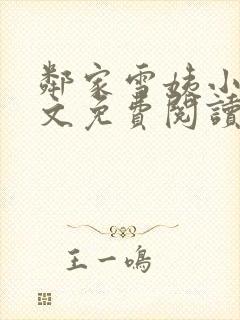 鄰家雪姨小
文免費閱讀
王一鳴